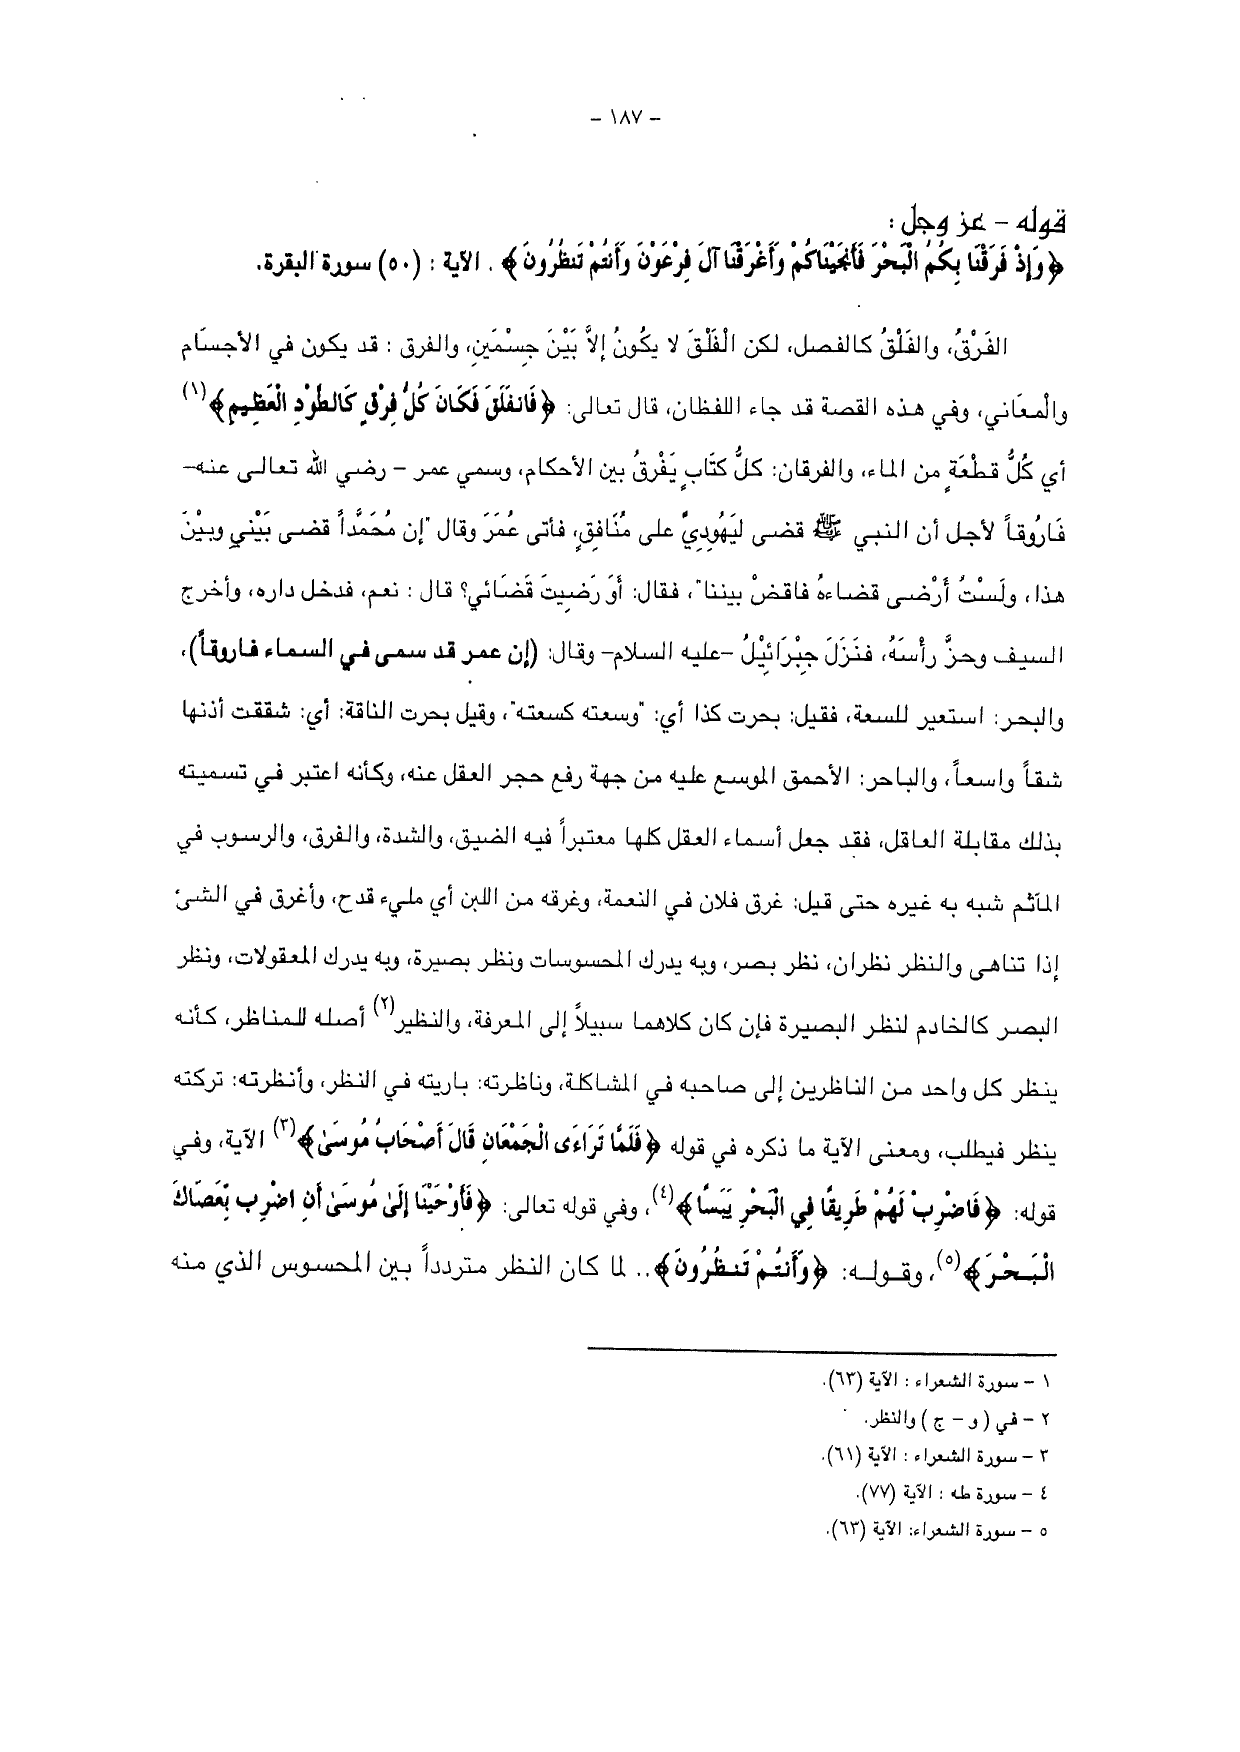 - ١٨٧ -
قوله - عز وجل :
﴿وَإِذْ فَرَقْنَا بِكُمُ الْبَحْرَ فَأَنجَيْنَاكُمْ وَأَغْرَقْنَا آلَ فِرْعَوْنَ وَأَنتُمْ تَنظُرُونَ﴾ . الآية : (٥٠) سورة البقرة.
الفَرْقُ، والفَلْقُ كالفصل، لكن الْفَلْقَ لا يكُونُ إلاَّ بَيْنَ جِسْمَينِ، والفرق : قد يكون في الأجسَام
والْمعَاني، وفي هذه القصة قد جاء اللفظان، قال تعالى: ﴿فَانفَلَقَ فَكَانَ كُلُّ فِرْقٍ كَالطَّوْدِ الْعَظِيمِ﴾(١)
أي كُلُّ قطْعَةٍ من الماء، والفرقان: كلُّ كتَابٍ يَفْرقُ بين الأحكام، وسمي عمر - رضي الله تعالى عنه-
فَارُوقاً لأجل أن النبي ﷺ قضى ليَهُوديٍّ على مُنَافقٍ، فأتى عُمَرَ وقال "إن مُحَمَّداً قضى بَيْني وبيْنَ
هذا، ولَسْتُ أَرْضى قضاءهُ فاقضْ بيننا"، فقال: أوَ رَضيتَ قَضَائي؟ قال : نعم، فدخل داره، وأخرج
السيف وحزَّ رأْسَهُ، فنَزَلَ جِبْرَائيْلُ -عليه السلام- وقال: (إن عمر قد سمى في السماء فاروقاً)،
والبحر: استعير للسعة، فقيل: بحرت كذا أي: "وسعته كسعته"، وقيل بحرت الناقة: أي: شققت أذنها
شقاً واسعاً، والباحر: الأحمق الموسع عليه من جهة رفع حجر العقل عنه، وكأنه اعتبر في تسميته
بذلك مقابلة العاقل، فقد جعل أسماء العقل كلها معتبراً فيه الضيق، والشدة، والفرق، والرسوب في
المآثم شبه به غيره حتى قيل: غرق فلان في النعمة، وغرقه من اللبن أي مليء قدح، وأغرق في الشئ
إذا تناهى والنظر نظران، نظر بصر، وبه يدرك المحسوسات ونظر بصيرة، وبه يدرك المعقولات، ونظر
البصر كالخادم لنظر البصيرة فإن كان كلاهما سبيلاً إلى المعرفة، والنظير(٢) أصله للمناظر، كأنه
ينظر كل واحد من الناظرين إلى صاحبه في المشاكلة، وناظرته: باريته في النظر، وأنظرته: تركته
ينظر فيطلب، ومعنى الآية ما ذكره في قوله ﴿فَلَمَّا تَرَاءَى الْجَمْعَانِ قَالَ أَصْحَابُ مُوسَىٰ﴾(٣) الآية، وفي
قوله: ﴿فَاضْرِبْ لَهُمْ طَرِيقًا فِي الْبَحْرِ يَبَسًا﴾(٤)، وفي قوله تعالى: ﴿فَأَوْحَيْنَا إِلَىٰ مُوسَىٰ أَنِ اضْرِب بِّعَصَاكَ
الْبَحْرَ﴾(٥)، وقوله: ﴿وَأَنتُمْ تَنظُرُونَ﴾.. لما كان النظر متردداً بين المحسوس الذي منه
١ - سورة الشعراء : الآية (٦٣).
٢ - في ( و - ج ) والنظر.
٣ - سورة الشعراء : الآية (٦١).
٤ - سورة طه : الآية (٧٧).
٥ - سورة الشعراء: الآية (٦٣).